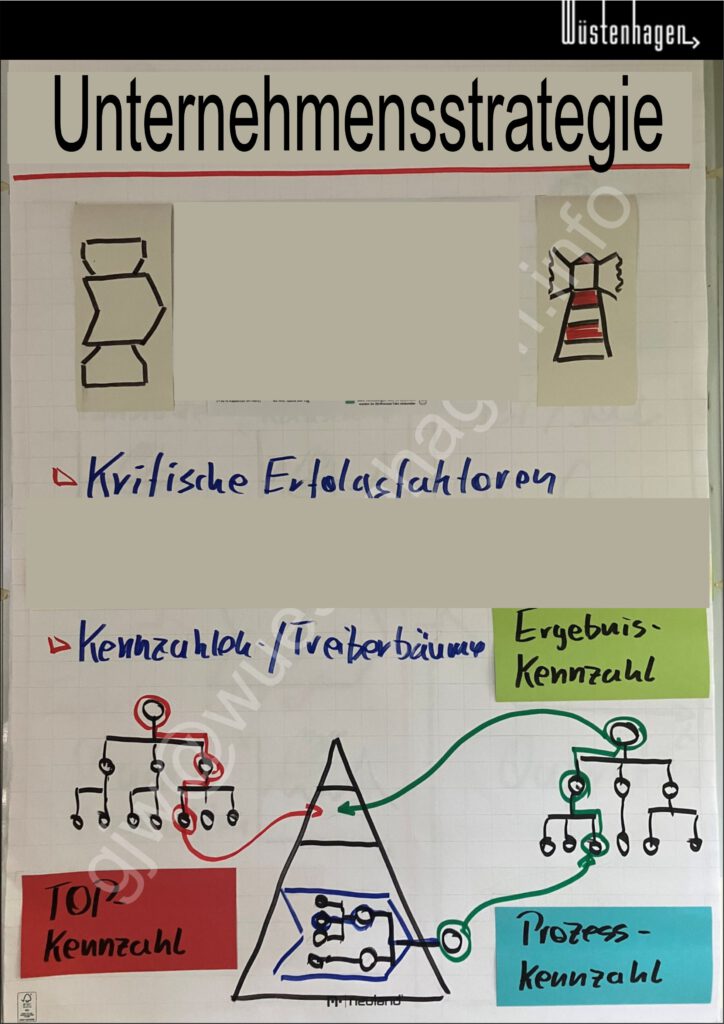 Wüstenhagen
Unternehmensstrategie
Kritische Erfolgsfaktoren
Kennzahlen-/Treiberbäume
Ergebnis-
Kennzahl
TOP-
Kennzahl
Prozess-
kennzahl
neuland